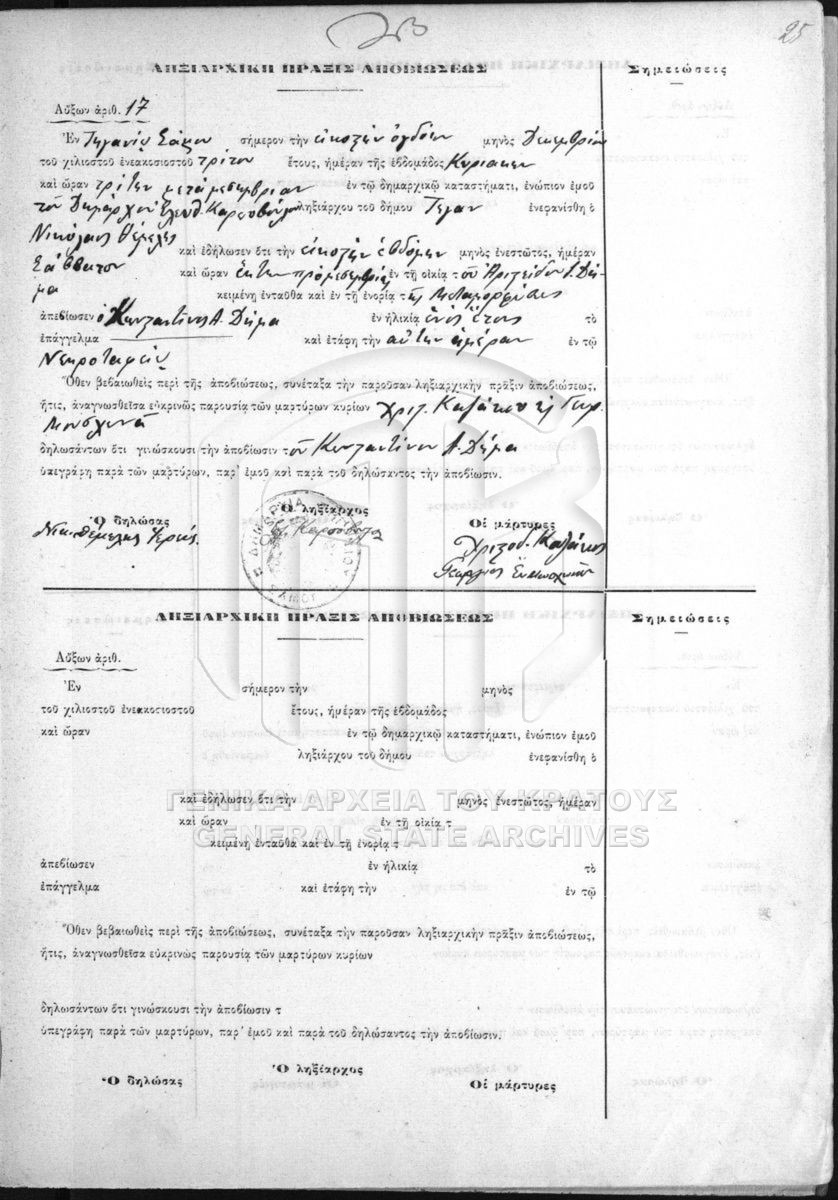 25
ΛΗΞΙΑΡΧΙΚΗ ΠΡΑΞΙΣ ΑΠΟΒΙΩΣΕΩΣ
Σημειώσεις
Αὔξων ἀριθ. 17
Ἐν Τηγανίῳ Σάμου σήμερον τὴν εἰκοστὴν ὀγδόην μηνὸς Δεκεμβρίου
τοῦ χιλιοστοῦ ἐνεακοσιοστοῦ τρίτου ἔτους, ἡμέραν τῆς ἑβδομάδος Κυριακὴν
καὶ ὥραν τρίτην μετὰ μεσημβρίαν ἐν τῷ δημαρχικῷ καταστήματι, ἐνώπιον ἐμοῦ
τοῦ Δημάρχου Ἐλευθ. ληξιάρχου τοῦ δήμου Τηγαν ἐνεφανίσθη ὁ
Νικόλαος Θέμελης καὶ ἐδήλωσεν ὅτι τὴν εἰκοστὴν ἑβδόμην μηνὸς ἐνεστῶτος, ἡμέραν
Σάββατον καὶ ὥραν ἕκτην προμεσημβρίας ἐν τῇ οἰκίᾳ τοῦ Ἀριστείδου Δή-
μα κειμένῃ ἐνταῦθα καὶ ἐν τῇ ἐνορίᾳ τῆς Μεταμορφώσεως
ἀπεβίωσεν ὁ Κωνσταντῖνος Α. Δήμα ἐν ἡλικίᾳ ἑνὸς ἔτους τὸ
ἐπάγγελμα καὶ ἐτάφη τὴν αὐτὴν ἡμέραν ἐν τῷ
Νεκροταφείῳ
Ὅθεν βεβαιωθεὶς περὶ τῆς ἀποβιώσεως, συνέταξα τὴν παροῦσαν ληξιαρχικὴν πρᾶξιν ἀποβιώσεως,
ἥτις, ἀναγνωσθεῖσα εὐκρινῶς παρουσίᾳ τῶν μαρτύρων κυρίων Χριστ.
δηλωσάντων ὅτι γινώσκουσι τὴν ἀποβίωσιν τοῦ Κωνσταντίνου Α. Δήμα
ὑπεγράφη παρὰ τῶν μαρτύρων, παρ' ἐμοῦ καὶ παρὰ τοῦ δηλώσαντος τὴν ἀποβίωσιν.
Ὁ δηλώσας Ὁ ληξίαρχος Οἱ μάρτυρες
Νικ. Θέμελης Ἱερεύς.
Γεώργιος
ΛΗΞΙΑΡΧΙΚΗ ΠΡΑΞΙΣ ΑΠΟΒΙΩΣΕΩΣ
Σημειώσεις
Αὔξων ἀριθ.
Ἐν σήμερον τὴν μηνὸς
τοῦ χιλιοστοῦ ἐνεακοσιοστοῦ ἔτους, ἡμέραν τῆς ἑβδομάδος
καὶ ὥραν ἐν τῷ δημαρχικῷ καταστήματι, ἐνώπιον ἐμοῦ
ληξιάρχου τοῦ δήμου ἐνεφανίσθη ὁ
καὶ ἐδήλωσεν ὅτι τὴν μηνὸς ἐνεστῶτος, ἡμέραν
ΓΕΝΙΚΑ ΑΡΧΕΙΑ ΤΟΥ ΚΡΑΤΟΥΣ
καὶ ὥραν ἐν τῇ οἰκίᾳ τ
GENERAL STATE ARCHIVES
κειμένῃ ἐνταῦθα καὶ ἐν τῇ ἐνορίᾳ τ
ἀπεβίωσεν ἐν ἡλικίᾳ τὸ
ἐπάγγελμα καὶ ἐτάφη τὴν ἐν τῷ
Ὅθεν βεβαιωθεὶς περὶ τῆς ἀποβιώσεως, συνέταξα τὴν παροῦσαν ληξιαρχικὴν πρᾶξιν ἀποβιώσεως,
ἥτις, ἀναγνωσθεῖσα εὐκρινῶς παρουσίᾳ τῶν μαρτύρων κυρίων
δηλωσάντων ὅτι γινώσκουσι τὴν ἀποβίωσιν τ
ὑπεγράφη παρὰ τῶν μαρτύρων, παρ' ἐμοῦ καὶ παρὰ τοῦ δηλώσαντος τὴν ἀποβίωσιν.
Ὁ δηλώσας Ὁ ληξίαρχος Οἱ μάρτυρες